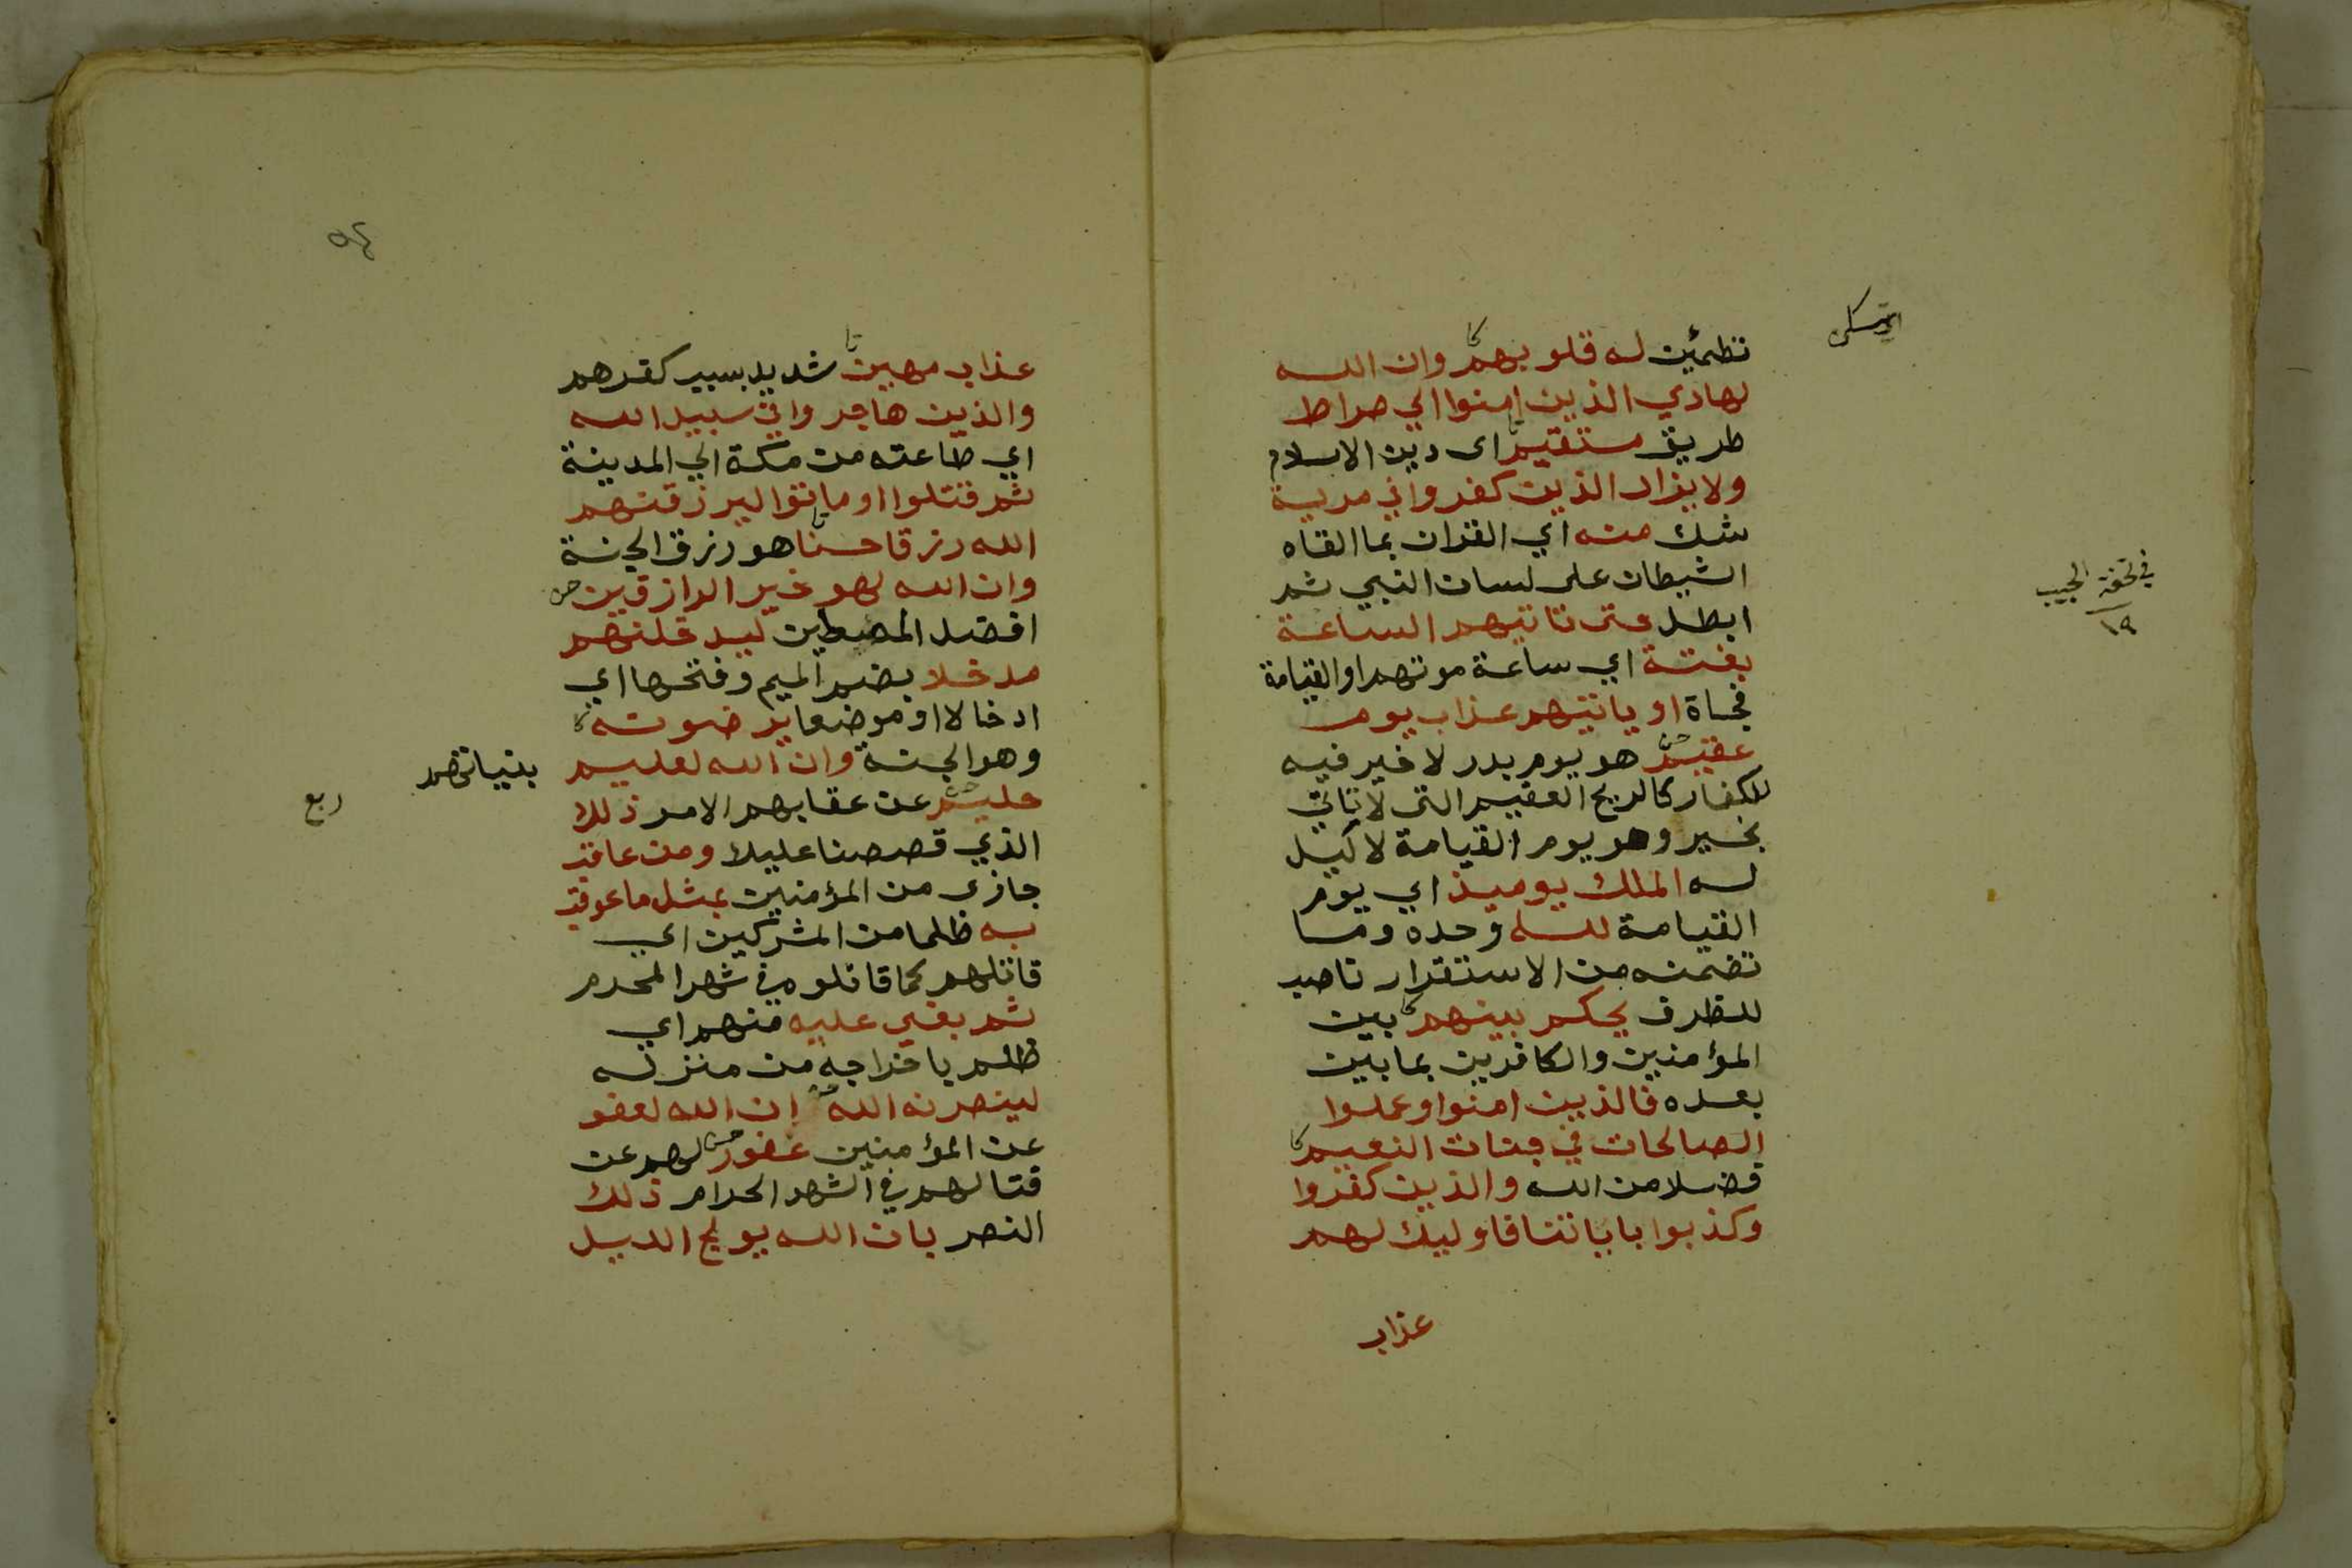 تطمئن له قلوبهم وان الله
لهادي الذين امنوا الي صراط
طريق مستقيم اى دين الاسلام
ولا يزال الذين كفروا في مرية
شك منه اي القران بما القاه
الشيطان على لسان النبي ثم
ابطل حتى تاتيهم الساعة
بغتة اي ساعة موتهم او القيامة
فجاة او ياتيهم عذاب يوم
عقيم هو يوم بدر لا خير فيه
للكفار كالريح العقيم التى لا تاتي
بخير وهو يوم القيامة لا ليل
له الملك يوميذ اي يوم
القيامة لله وحده وما
تضمنه من الاستقرار ناصب
للظرف يحكم بينهم بين
المؤمنين والكافرين بما بين
بعده فالذين امنوا وعملوا
الصالحات في جنات النعيم
فضلا من الله والذين كفروا
وكذبوا باياتنا فاوليك لهم
عذاب
في تحفة الحبيب
١٩
عذاب مهين شديد بسبب كفرهم
والذين هاجروا في سبيل الله
اي طاعته من مكة الي المدينة
ثم قتلوا او ماتوا ليرزقنهم
الله رزقا حسنا هو رزق الجنة
وان الله لهو خير الرازقين
افضل المعطين ليدخلنهم
مدخلا بضم الميم وفتحها اي
ادخالا او موضعا يرضونه
وهو الجنة وان الله لعليم بنياتهم
حليم عن عقابهم الامر ذلك
ربع
الذي قصصنا عليك ومن عاقب
جازى من المؤمنين بمثل ما عوقب
به ظلما من المشركين اي
قاتلهم كما قاتلوه في شهر المحرم
ثم بغي عليه منهم اي
ظلم باخراجه من منزله
لينصرنه الله ان الله لعفو
عن المؤمنين غفور لهم عن
قتالهم في الشهر الحرام ذلك
النصر بان الله يولج الليل